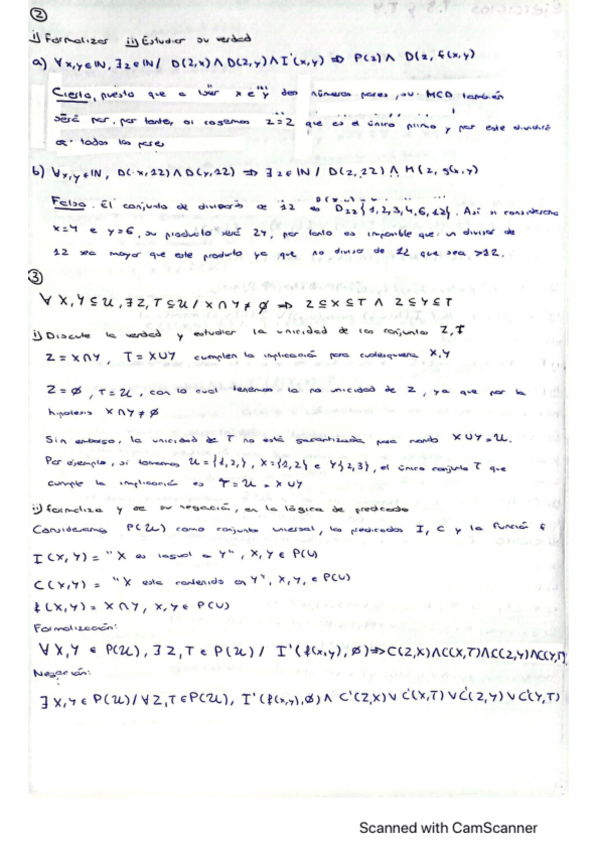 ②
i) Formalizar ii) Estudiar su verdad
a) ∀x,y∈IN, ∃z∈IN / D(2,x) ∧ D(2,y) ∧ I'(x,y) ⇒ P(z) ∧ D(z, f(x,y)
Cierta, puesto que a ser x e y dos números pares, su MCD también
será par, por tanto, si cogemos z=2 que es el único primo y par este dividirá
a todos los pares
b) ∀x,y∈IN, D(x,12) ∧ D(y,12) ⇒ ∃z∈IN / D(z,12) ∧ M(z, g(x,y)
Falso. El conjunto de divisores de 12 es {1,2,3,4,6,12}. Así si consideramos
x=4 e y=6, su producto será 24, por tanto es imposible que un divisor de
12 sea mayor que este producto ya que no divisor de 12 que sea >12.
③
∀ X,Y ⊆ U, ∃ Z,T ⊆ U / X ∩ Y ≠ ∅ ⇒ Z ⊆ X ⊆ T ∧ Z ⊆ Y ⊆ T
i) Discute la verdad y estudiar la unicidad de los conjuntos Z,T
Z = X∩Y, T = X∪Y cumplen la implicación para cualesquiera X,Y
Z = ∅, T = U, con lo cual tenemos la no unicidad de Z, ya que por la
hipótesis X∩Y ≠ ∅
Sin embargo, la unicidad de T no está garantizada para X∪Y = U.
Por ejemplo, si tomamos U = {1,2,}, X = {1,2} e Y{2,3}, el único conjunto T que
cumple la implicación es T = U = X∪Y
ii) formaliza y de su negación, en la lógica de predicado
Consideramos P(U) como conjunto universal, los predicados I, C y la función f
I(X,Y) = "X es igual a Y", X,Y ∈ P(U)
C(X,Y) = "X esta contenido en Y", X,Y, ∈ P(U)
f(X,Y) = X∩Y, X,Y ∈ P(U)
Formalización:
∀X,Y ∈ P(U), ∃Z,T ∈ P(U) / I'(f(x,y), ∅) ⇒ C(Z,X)∧C(X,T)∧C(Z,Y)∧C(Y,T)
Negación:
∃X,Y ∈ P(U) / ∀Z,T ∈ P(U), I'(f(x,y),∅) ∧ C'(Z,X) ∨ C'(X,T) ∨ C'(Z,Y) ∨ C'(Y,T)
Scanned with CamScanner